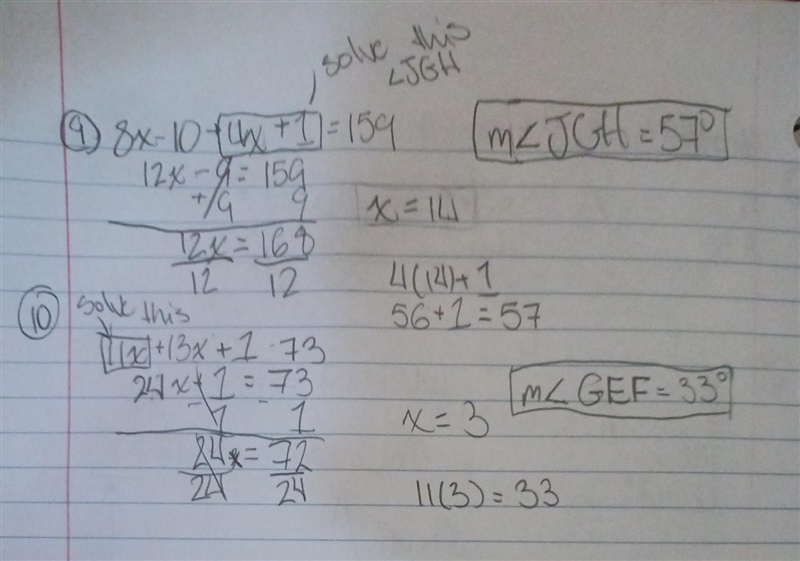 solve this
∠JGH
9) 8x-10+4x+1=159
m∠JGH=57°
12x-9=159
+9 9
x=14
12x=168
12 12
4(14)+1
56+1=57
10) solve this
11x+13x+1 73
24x+1=73
m∠GEF=33°
-1 -1
x=3
24x=72
24 24
11(3)=33